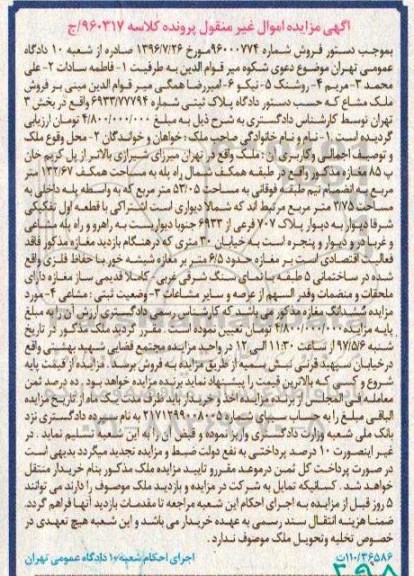 آگهی مزایده اموال غیر منقول پرونده کلاسه ۹۶۰۳۱۷/ج
بموجب دستور فروش شماره ۹۶۰۰۰۷۷۴ مورخ ۱۳۹۶/۷/۲۶ صادره از شعبه ۱۰ دادگاه
عمومی تهران موضوع دعوی شکوه میر قوام الدین به طرفیت ۱- فاطمه سادات ۲- علی
محمد ۳- مریم ۴- روشنک ۵- نیکو ۶- امیررضا همگی میر قوام الدین مبنی بر فروش
ملک مشاع که حسب دستور دادگاه پلاک ثبتی شماره ۶۹۳۳/۷۷۷۹۴ واقع در بخش ۳
تهران توسط کارشناس دادگستری به شرح ذیل به مبلغ ۴/۸۰۰/۰۰۰/۰۰۰ تومان ارزیابی
گردیده است ۱- نام و نام خانوادگی صاحب ملک: خواهان و خواندگان ۲- محل وقوع ملک
و توصیف اجمالی و کاربری آن: ملک واقع در تهران میرزای شیرازی بالاتر از پل کریم خان
پ ۸۵ مغازه مذکور واقع در طبقه همکف شمال راه پله به مساحت همکف ۱۳۲/۶۷ متر
مربع به انضمام نیم طبقه فوقانی به مساحت ۵۳/۰۵ متر مربع که به واسطه پله داخلی به
مساحت ۳/۷۵ متر مربع مرتبط اند که شمالا دیواری است اشتراکی با قطعه اول تفکیکی
شرقا دیوار به دیوار پلاک ۷۰۷ فرعی از ۶۹۳۳ جنوبا دیواریست به راهرو و راه پله مشاعی
و غربا در و دیوار و پنجره است به خیابان ۳۰ متری که در هنگام بازدید مغازه مذکور فاقد
فعالیت اقتصادی است بر مغازه حدود ۶/۵ متر بر مغازه شیشه خور با حفاظ فلزی واقع
شده در ساختمانی ۵ طبقه با نمای سنگ شرقی غربی - کاملا قدیمی ساز مغازه دارای
ملحقات و منضمات و قدر السهم از عرصه و سایر مشاعات ۳- وضعیت ثبتی: مشاعی ۴- مورد
مزایده ششدانگ مغازه مذکور می باشد که کارشناس رسمی دادگستری ارزش آن را به مبلغ
پایه مزایده ۴/۸۰۰/۰۰۰/۰۰۰ تومان تعیین نموده است لذا مقرر گردید ملک مذکور در تاریخ
۹۷/۵/۶ شنبه از ساعت ۱۱:۳۰ الی ۱۲ در واحد مزایده مجتمع قضایی شهید بهشتی واقع
در خیابان سپهبد قرنی نبش سمیه از طریق مزایده به فروش برسد. مزایده از قیمت پایه
شروع و کسی که بالاترین قیمت را پیشنهاد نماید برنده مزایده خواهد بود. ده درصد ثمن
معامله فی المجلس از برنده مزایده اخذ و خریدار باید ظرف مدت یک ماه از تاریخ مزایده
الباقی مبلغ را به حساب سپای شماره ۲۱۷۱۲۹۹۰۰۸۰۰۵ به نام سپرده دادگستری نزد
بانک ملی شعبه وزارت دادگستری واریز نموده و فیش آن را به این شعبه تسلیم نماید. در
غیر اینصورت ۱۰ درصد پرداختی به نفع دولت ضبط و مزایده تجدید میگردد بدیهی است
در صورت پرداخت کل ثمن در موعد مقرر و تایید مزایده ملک مذکور بنام خریدار منتقل
خواهد شد. کسانیکه تمایل به شرکت در مزایده و بازدید ملک موصوف را دارند می توانند
۵ روز قبل از مزایده به اجرای احکام این شعبه مراجعه تا مقدمات بازدید آنها فراهم گردد.
ضمنا هزینه انتقال سند رسمی به عهده خریدار می باشد و این شعبه هیچ تعهدی در
خصوص تخلیه و تحویل ملک موصوف ندارد.
۱۱۰/۳۶۵۸۶ت اجرای احکام شعبه ۱۰ دادگاه عمومی تهران